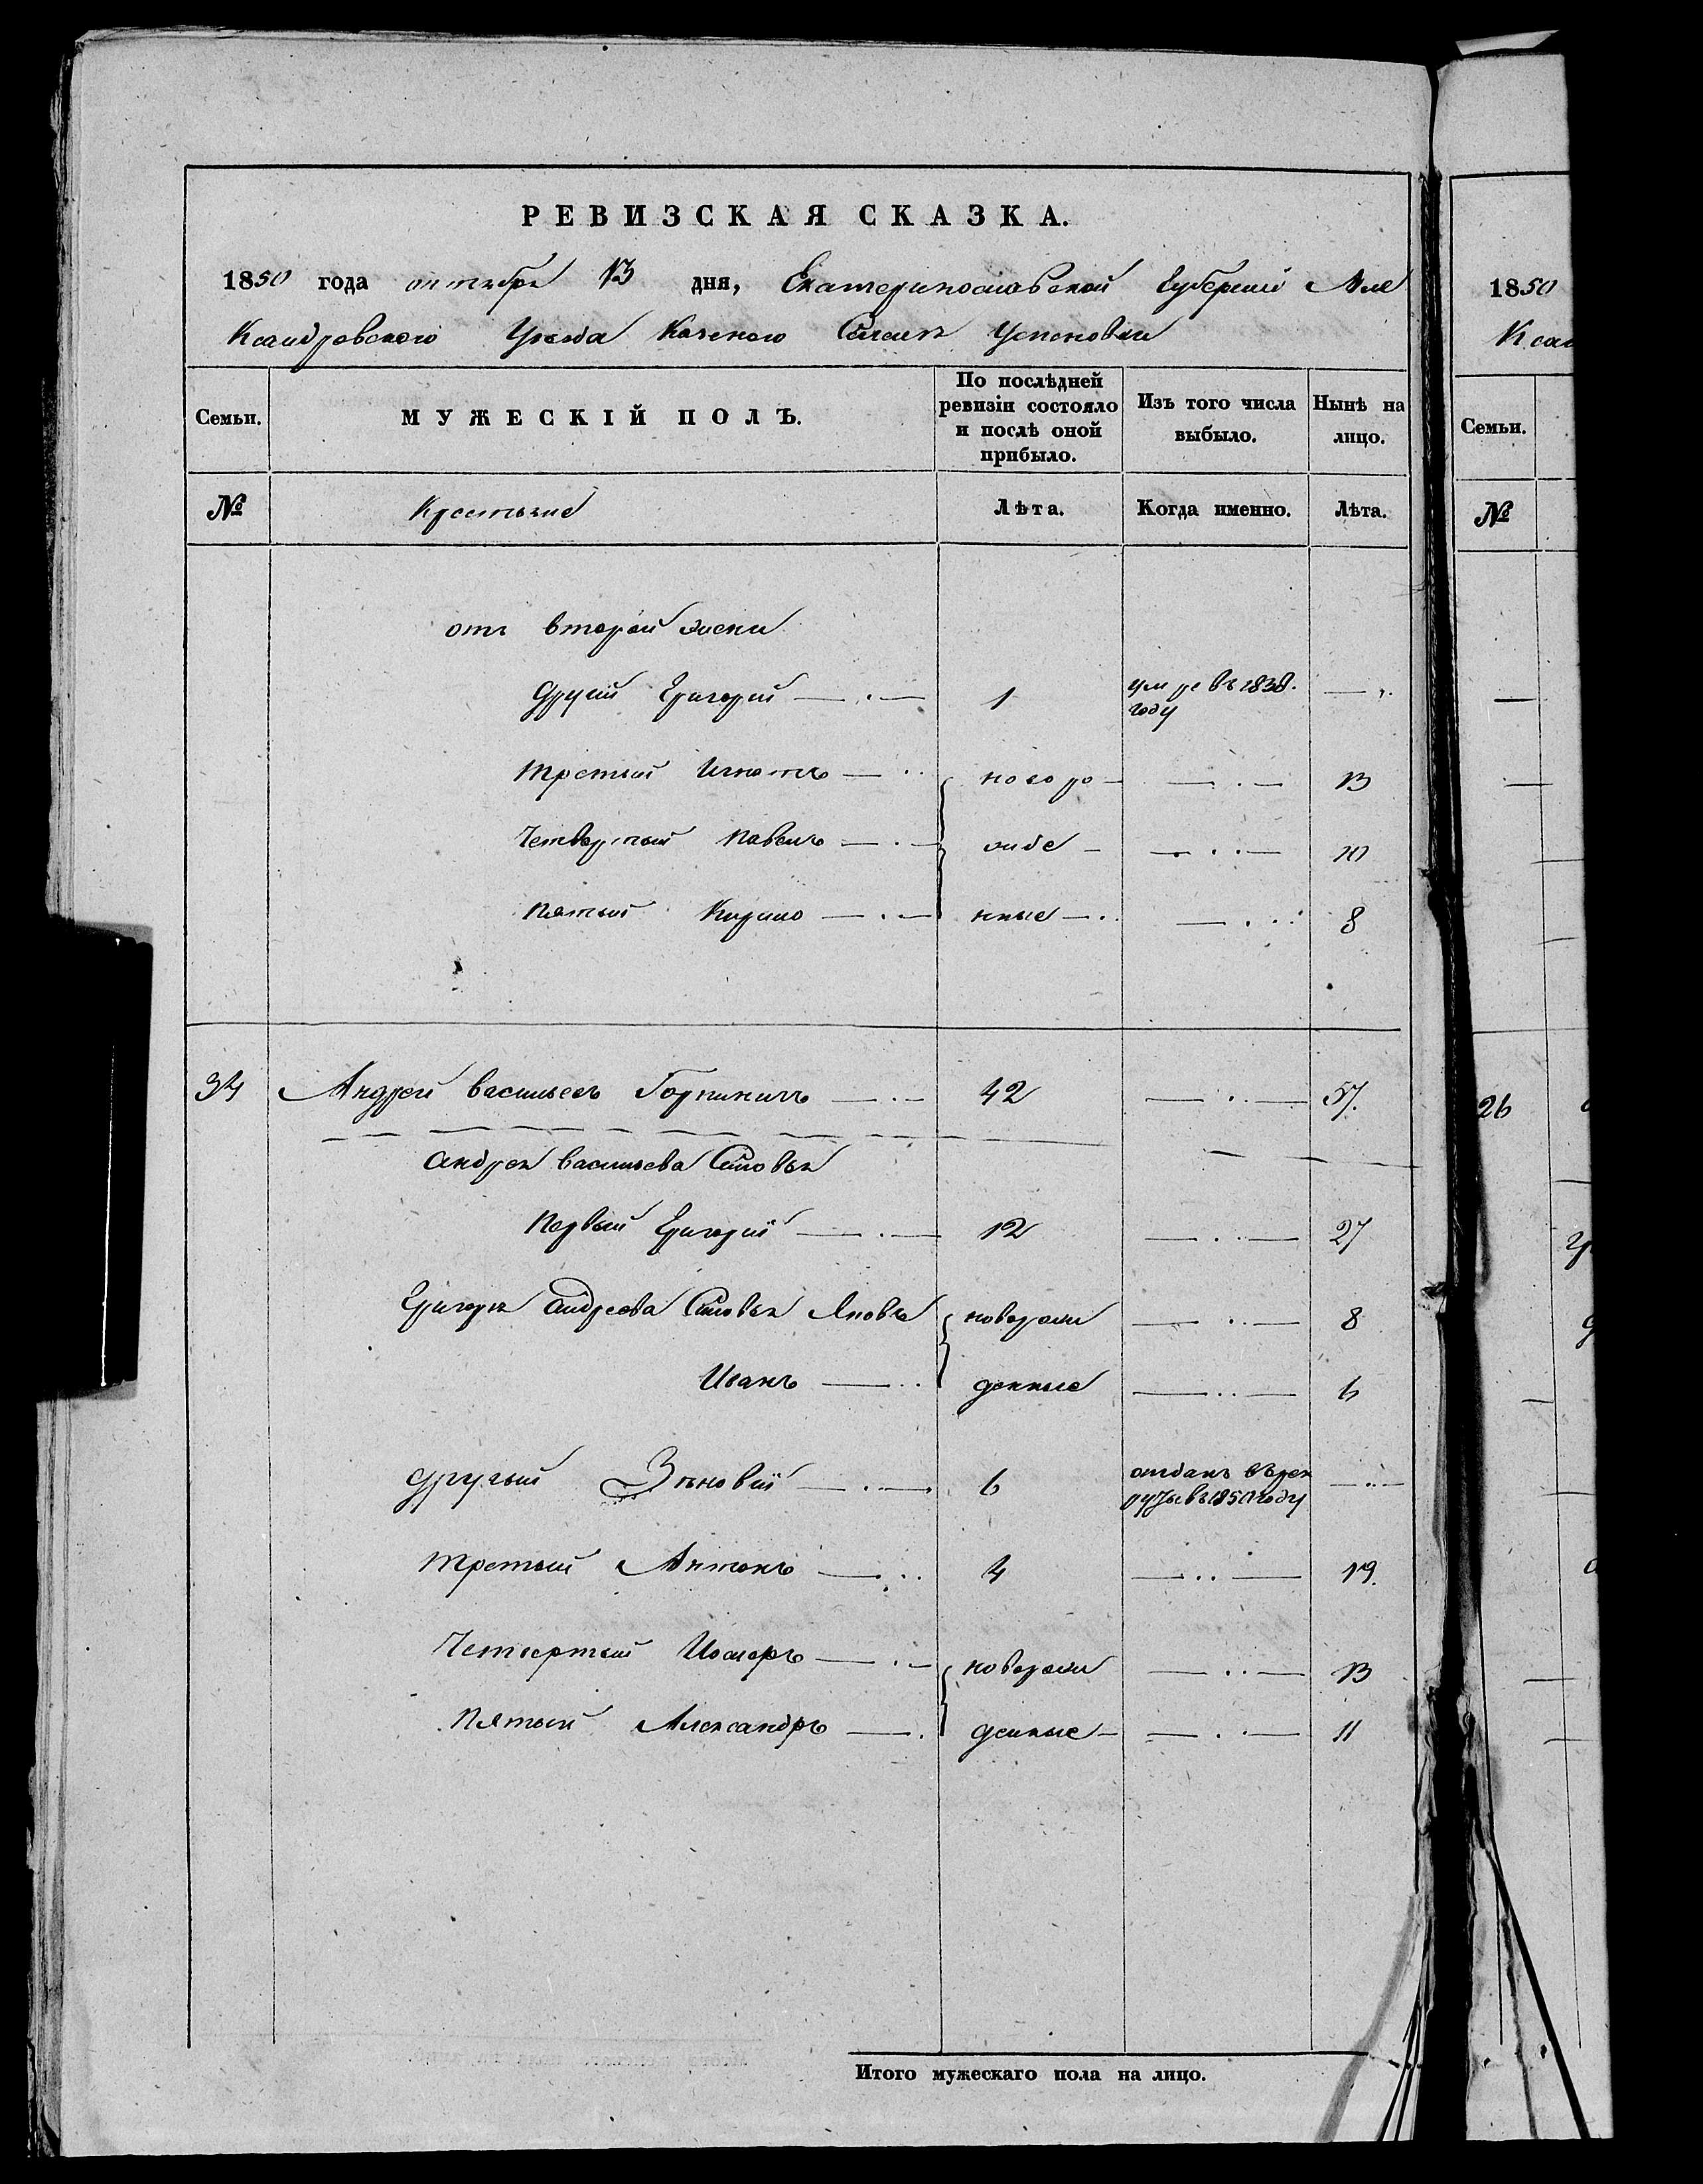 РЕВИЗСКАЯ СКАЗКА.
1850 года октября 13 дня, Екатеринославской Губернии Але
Ксандровского Уезда Казеного Селенія Успеновки
Семьи. МУЖЕСКІЙ ПОЛЪ. По послѣдней ревизіи состояло и послѣ оной прибыло. Изъ того числа выбыло. Нынѣ на лицо.
№ Крестьяне Лѣта. Когда именно. Лѣта.
отъ второй жены
Другий Григорий — . — 1 умре въ 1838. году — ..
Третий Игнатъ — .. новоро — — . — 13
Четвертый Павелъ — . — жде — — . . — 10
Пятый Кирило — . — нные — .. — . . 8
34 Андрей Васильевъ Горпиничъ — . — 42 — . . — 57.
Андрея Васильева Сыновья
Первый Григорий — . — 12 — . . — 27
Григорія Андреева Сыновья Яковъ новорож — .. — 8
Иванъ — .. денные — .. — 6
другий Зѣновій — . — 6 отданъ въ рек руты въ 1850 году — .. —
третий Антонъ — . .. 4 — .. — 19.
Четвертый Иосифъ — . — новорож — .. — 13
Пятый Александръ — . денные — — . — 11
Итого мужескаго пола на лицо.
1850
Ксан
Семьи.
№
26